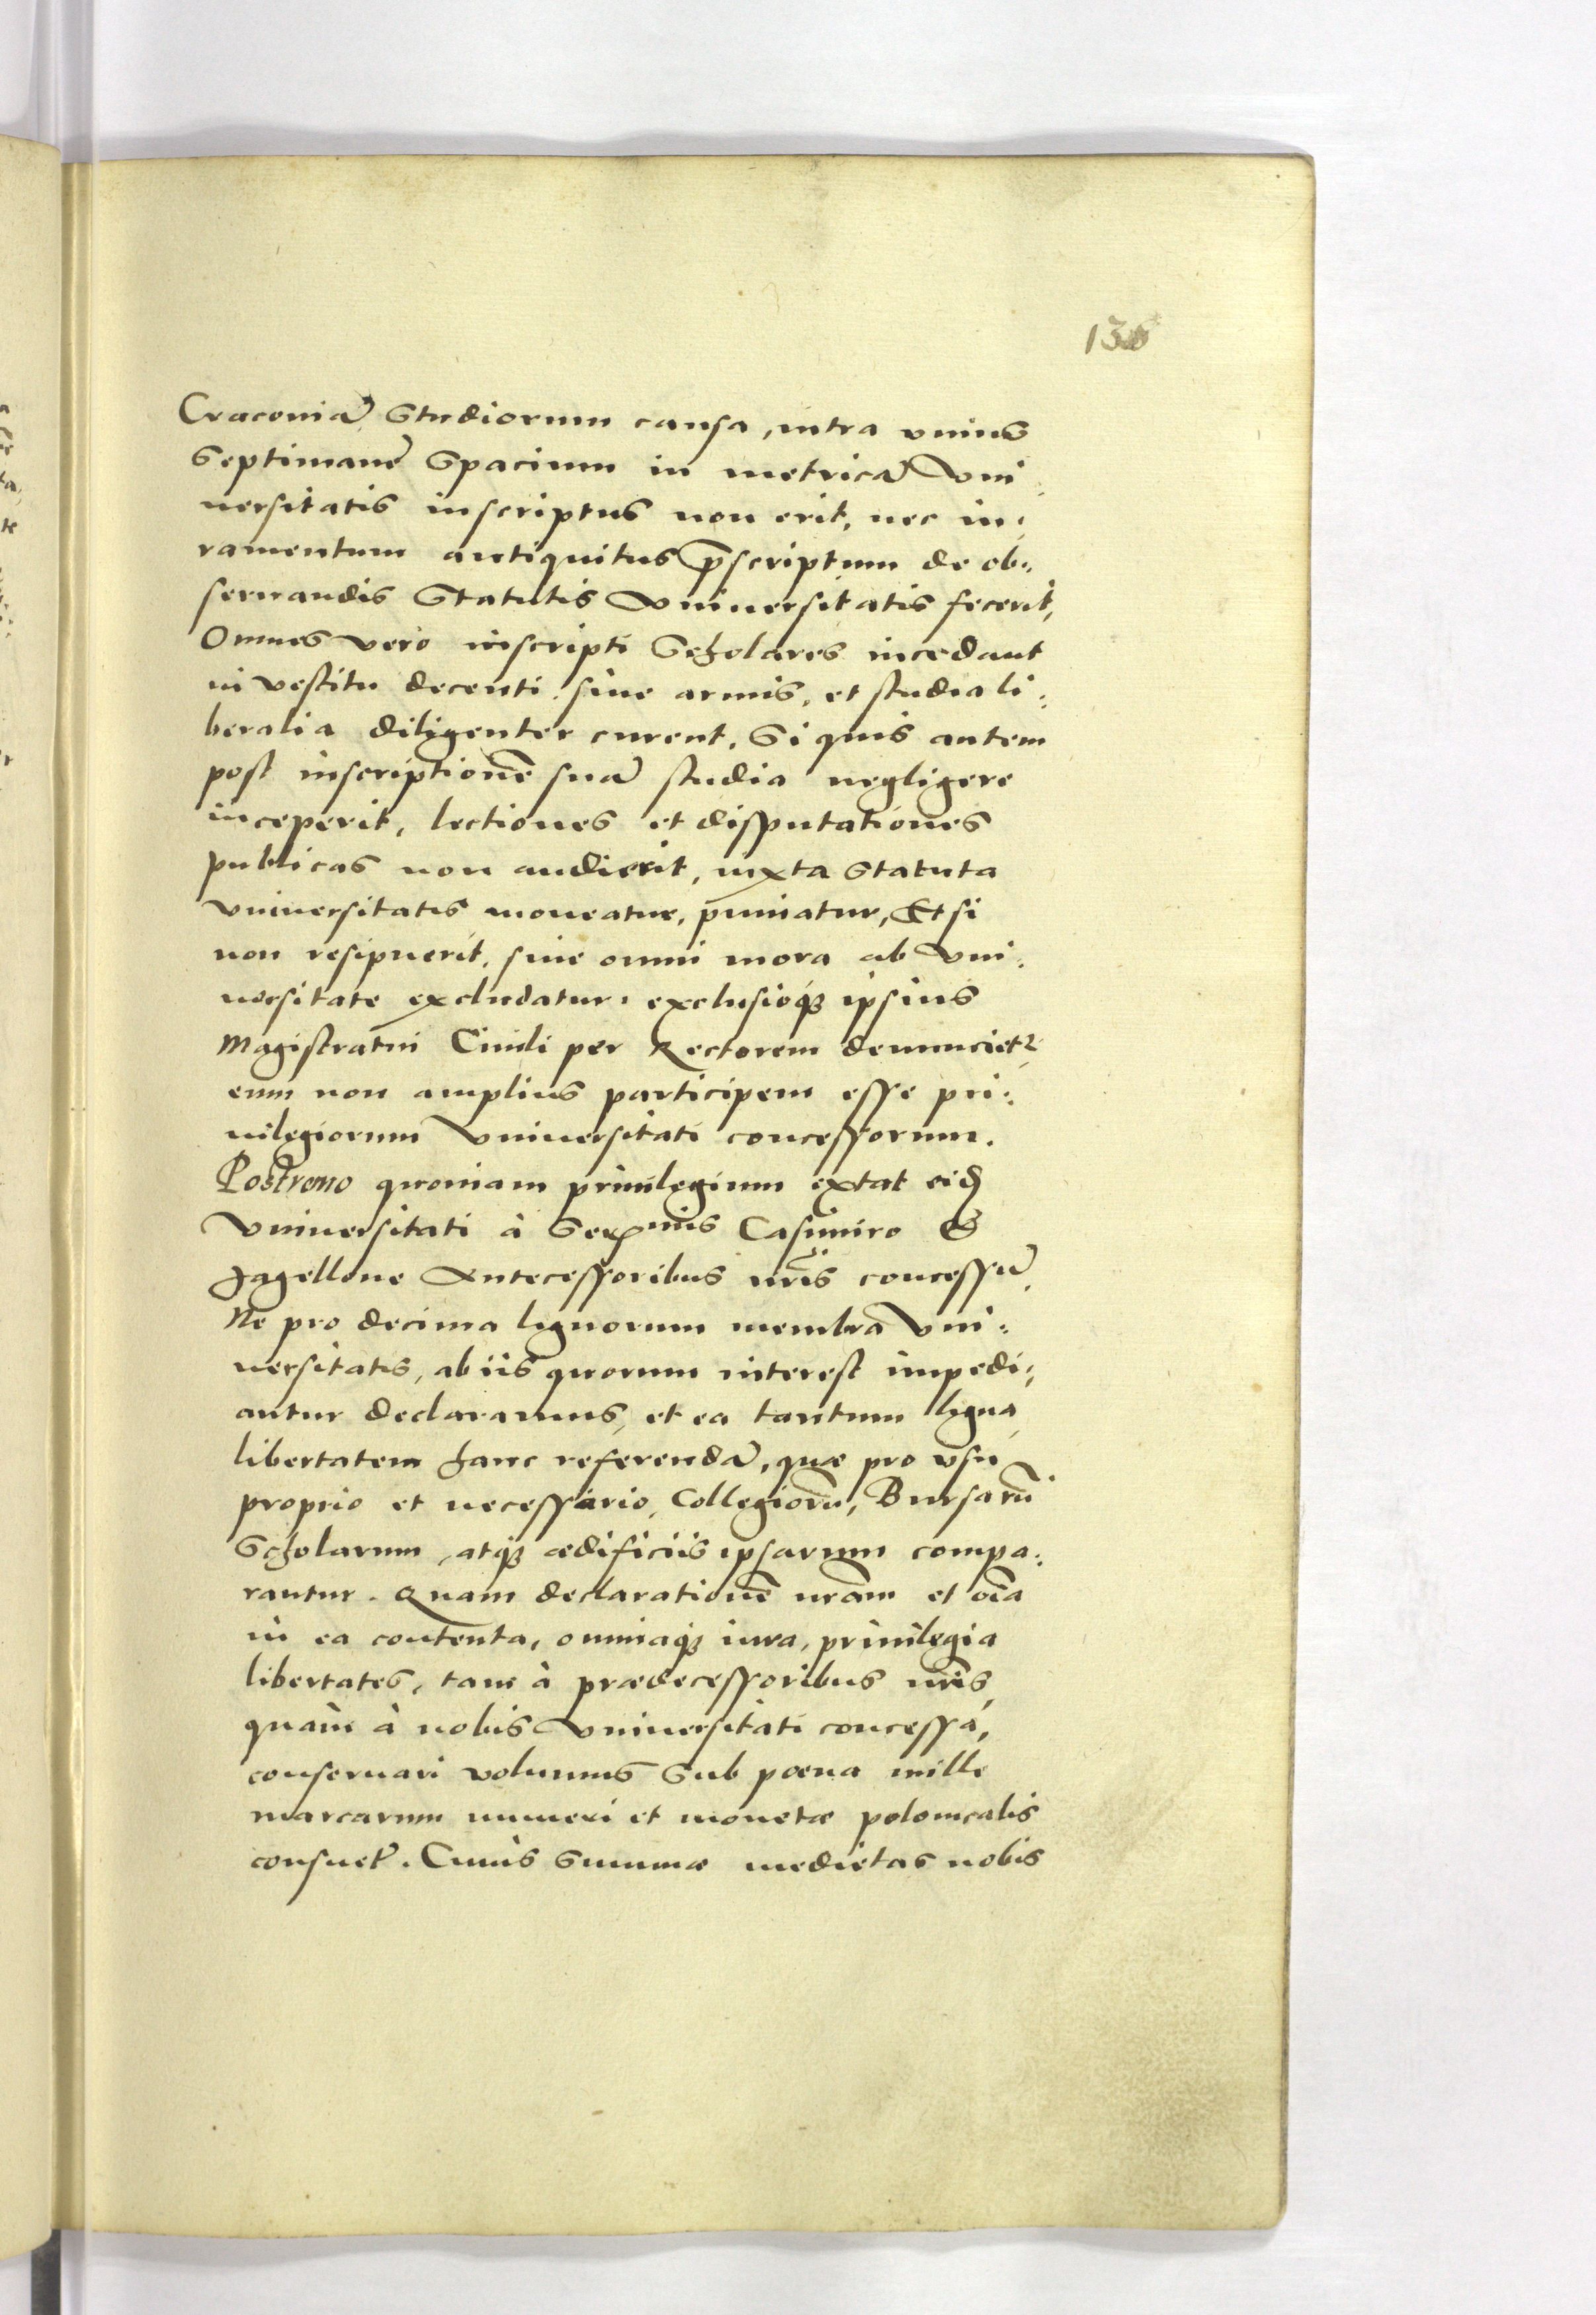 Cracouiã Studiorum causa, intra vnius
Septimanẽ Spacium in metricã Vni:
uersitatis inscriptus non erit, nec iu:
ramentum antiquitus p̃scriptum de ob:
seruandis Statutis Vniuersitatis fecerit,
Omnes vero inscripti Scholares incedant
in vestitu decenti, sine armis, et studia li:
beralia diligenter curent. Si quis autem
post inscriptionẽ suã studia negligere
inceperit, lectiones et disputationes
publicas non audierit, iuxta Statuta
Vniuersitatis moueatur, puniatur, Et si
non resipuerit, sine omni mora ab Vni:
uersitate excludatur, exclusioq́ꝫ ipsius
Magistratui Ciuili per Rectorem denuncietr
eum non amplius participem esse pri:
uilegiorum Vniuersitati concessorum.
Postremo quoniam priuilegium extat eid
Vniuersitati à Serᵐⁱˢ Casimiro &
Jagellone Antecessoribus nr̃is concessũ,
Ne pro decima lignorum membra Vni:
uersitatis, ab iis quorum interest impedi:
antur declaramus, et ea tantum ligna
libertatem hanc referendã, quæ pro vsu
proprio et necessario, Collegiorũ, Bursarũ
Scholarum, atqꝫ ædificiis ipsarum compa:
rantur. Quam declarationẽ nrãm et oĩa
in ea contenta, omniaqꝫ iura, priuilegia
libertates, tam à prædecessoribus nr̃is,
quàm à nobis Vniuersitati concessa,
conseruari volumus Sub pœna mille
marcarum numeri et monetæ polonicalis
consuet̃. Cuius Summæ medietas nobis